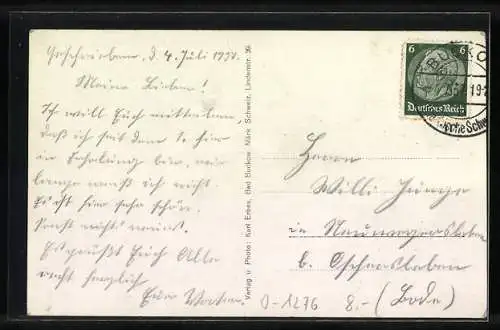 Geschrieben, d. 4. Juli 1937.
Meine Lieben!
Ich will Euch mitteilen,
daß ich seit dem 1. hier
in Erholung bin, wie
lange weiß ich nicht.
Es ist hier sehr schön.
Sonst nichts neues.
Es grüßt Euch Alle
recht herzlich
Euer Vater.
Verlag u. Photo: Karl Erbes, Bad Buckow Märk. Schweiz, Lindenstr. 39
6 6
Deutsches Reich
BUCKO
19-2
Schw
Herrn
Willi Junge
in Neuwegersleben
b. Oschersleben
(Bode)
O-1276 8.-